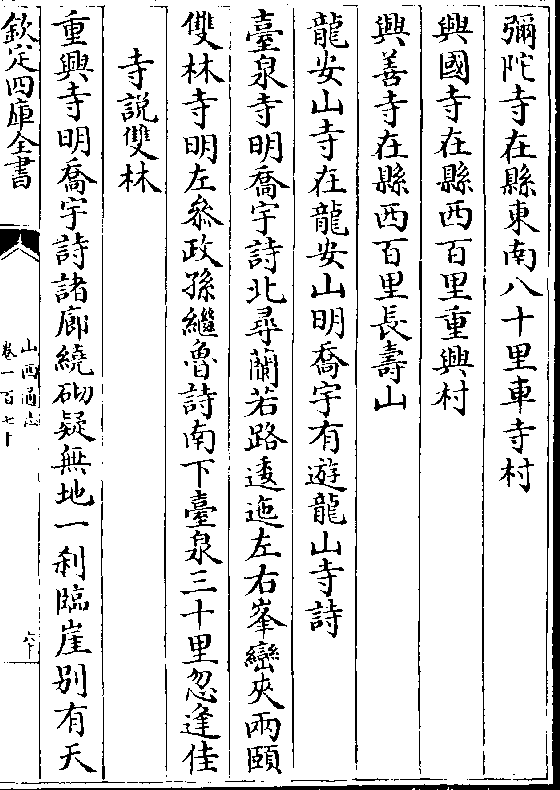 彌陀寺在縣東南八十里車寺村
興國寺在縣西百里重興村
興善寺在縣西百里長壽山
龍安山寺在龍安山明喬宇有遊龍山寺詩
臺泉寺明喬宇詩北尋蘭若路逶迤左右峯巒夾兩頤
雙林寺明左叅政孫繼魯詩南下臺泉三十里忽逢佳
寺説雙林
重興寺明喬宇詩諸廊繞砌疑無地一刹臨崖别有天
欽定四庫全書
山西通志
卷一百七十
六十